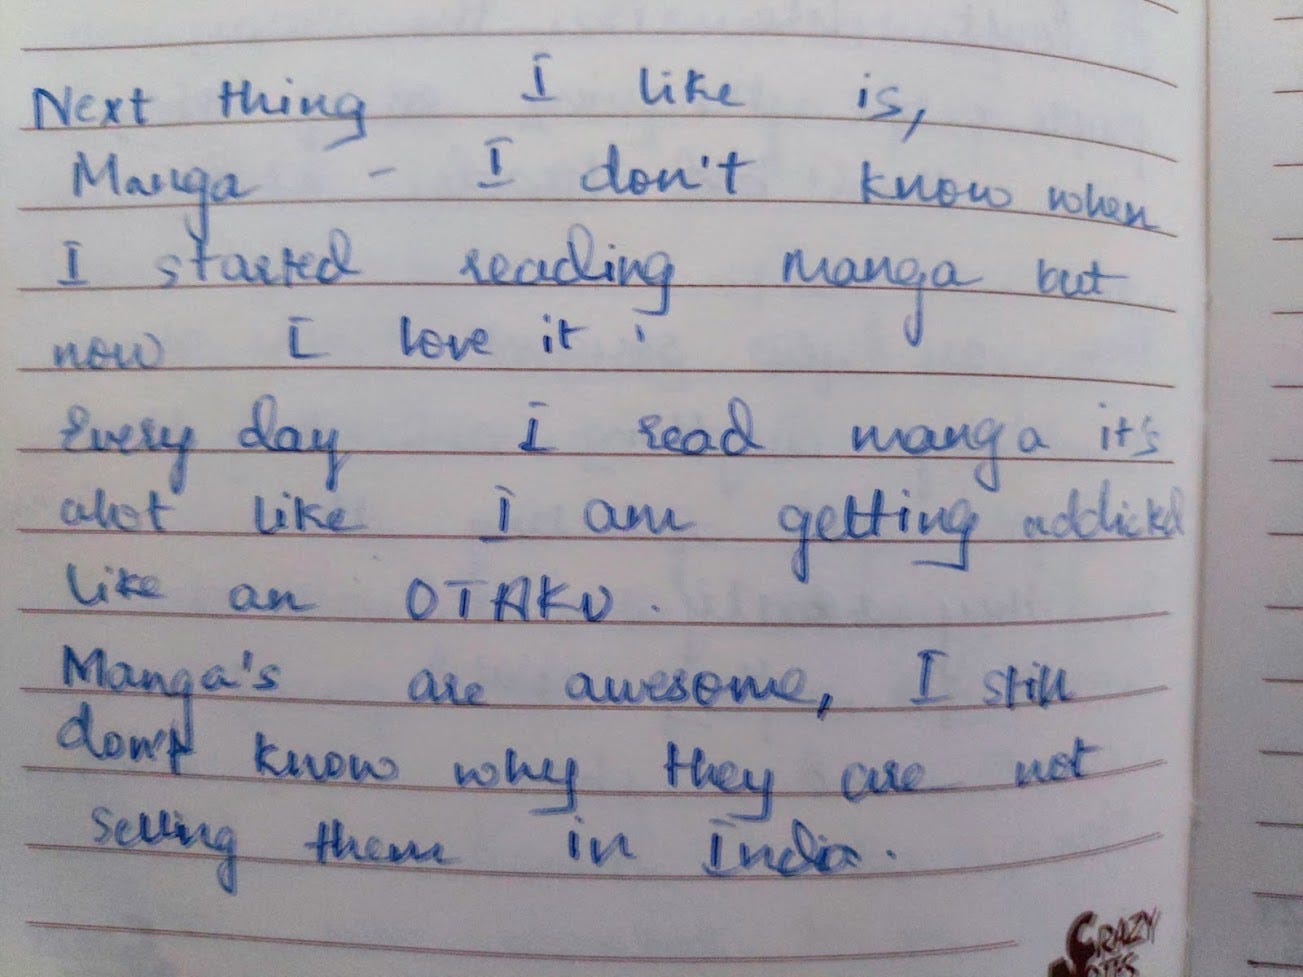 Next thing I like is,
Manga - I don't know when
I started reading manga but
now I love it.
Every day I read manga it's
alot like I am getting addickd
like an OTAKU.
Manga's are awesome, I still
don't know why they are not
selling them in India.
CRAZY
NOTES